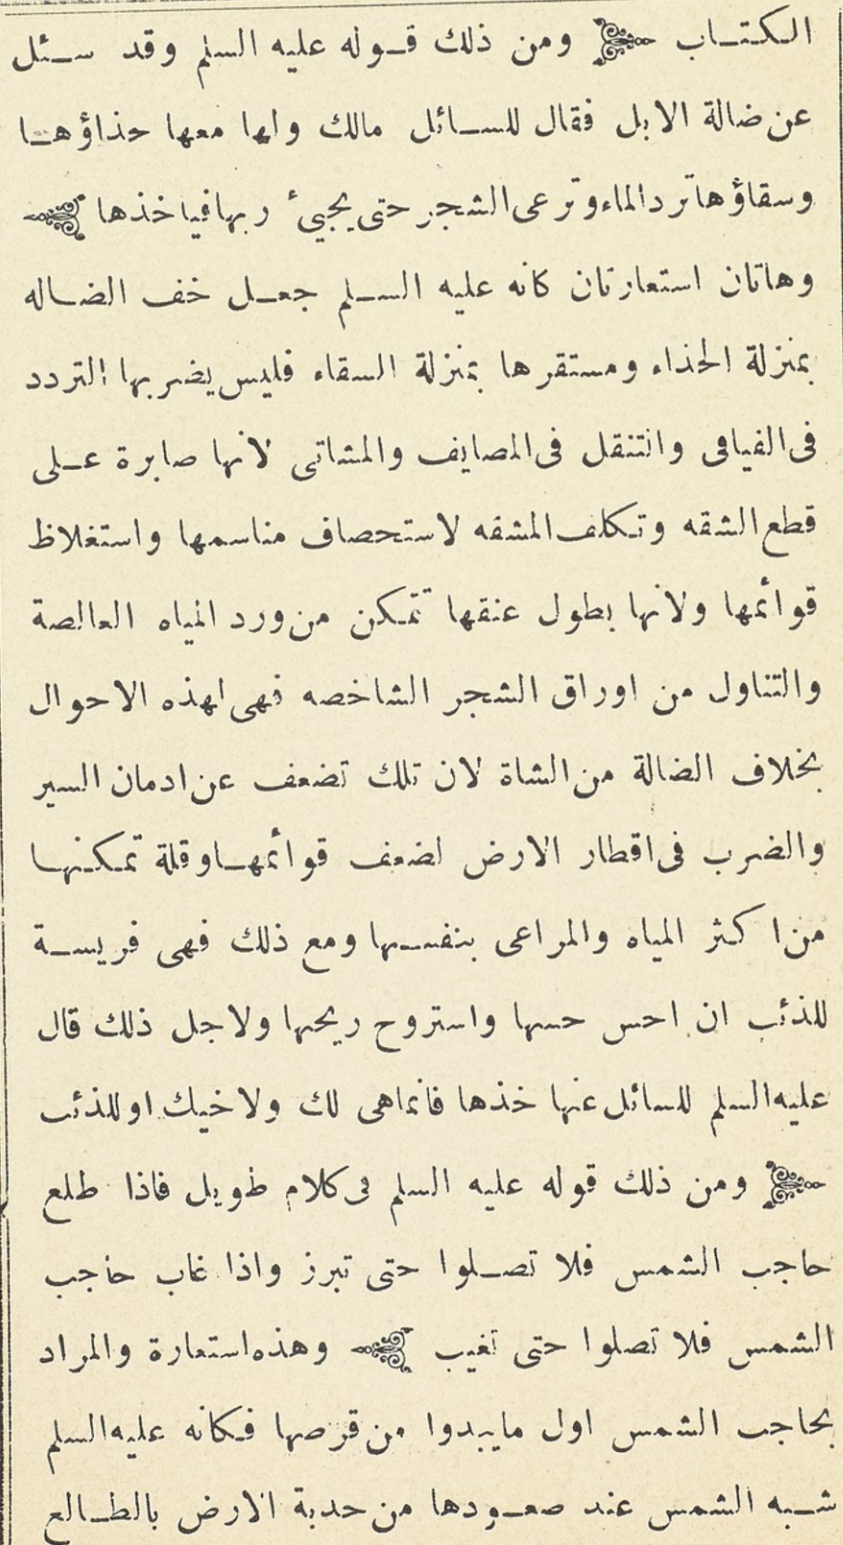 الكتاب ومن ذلك قوله عليه السلم وقد سئل
عن ضالة الابل فقال للسائل مالك ولها معها حذاؤها
وسقاؤها ترد الماء وترعى الشجر حتى يجيئ ربها فياخذها
وهاتان استعارتان كانه عليه السلم جعل خف الضاله
بمنزلة الحذاء ومستقرها بمنزلة السقاء فليس يضر بها التردد
فى الفيافى والتنقل فى المصايف والمشاتى لانها صابرة على
قطع الشقه وتكلف المشقه لاستحصاف مناسمها واستغلاظ
قوائمها ولانها بطول عنقها تتمكن من ورد المياه الغالصة
والتناول من اوراق الشجر الشاخصه فهى لهذه الاحوال
بخلاف الضالة من الشاة لان تلك تضعف عن ادمان السير
والضرب فى اقطار الارض لضعف قوائمها وقلة تمكنها
من اكثر المياه والمراعى بنفسها ومع ذلك فهى فريسة
للذئب ان احس حسها واستروح ريحها ولاجل ذلك قال
عليه السلم للسائل عنها خذها فانما هى لك ولاخيك او للذئب
ومن ذلك قوله عليه السلم فى كلام طويل فاذا طلع
حاجب الشمس فلا تصلوا حتى تبرز واذا غاب حاجب
الشمس فلا تصلوا حتى تغيب وهذه استعارة والمراد
بحاجب الشمس اول مايبدوا من قرصها فكانه عليه السلم
شبه الشمس عند صعودها من حدبة الارض بالطالع